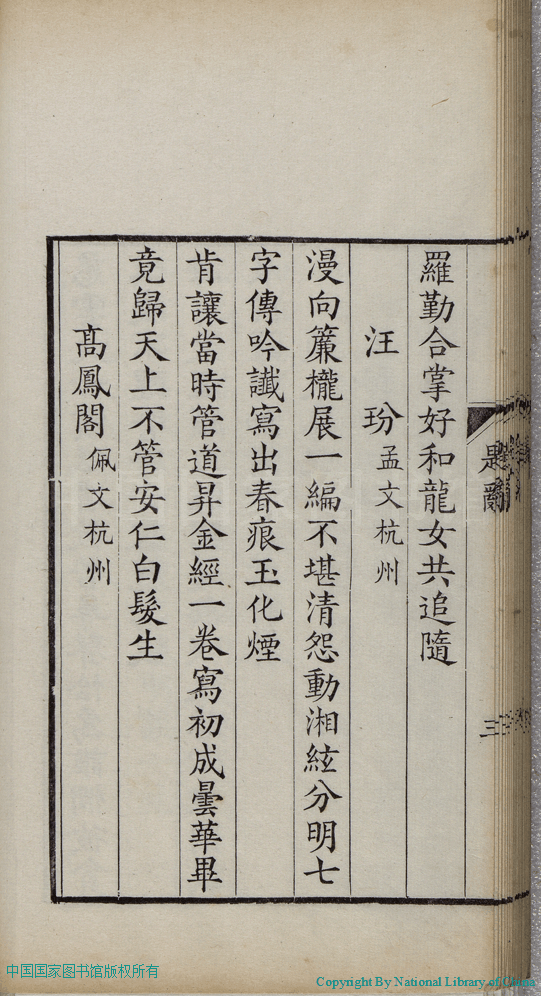 羅勤合掌好和龍女共追隨
汪玢孟文杭州
漫向簾櫳展一編不堪清怨動湘絃分明七
字傳吟讖寫出春痕玉化煙
肯讓當時管道昇金經一卷寫初成曇華畢
竟歸天上不管安仁白髮生
高鳳閣佩文杭州
題辭
三
中国国家图书馆版权所有
Copyright By National Library of China